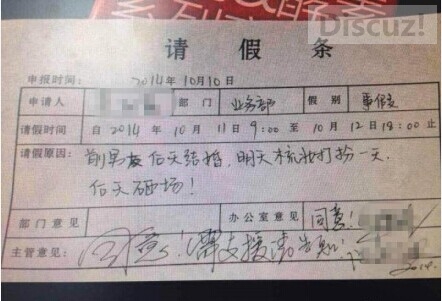 Discuz!
请假条
申报时间: 2014年10月10日
申请人 部门 业务部 假别 事假
请假时间 自2014年10月11日9:00至10月12日18:00止
请假原因: 前男友后天结婚,明天梳妆打扮一天,
后天砸场!
部门意见 办公室意见 同意!
主管意见: 同意!需支援请告知!
2014.